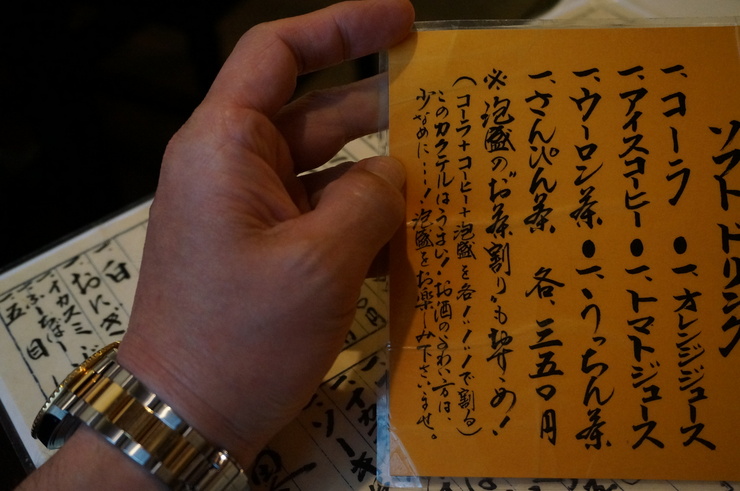 ソフトドリンク
一、コーラ ● 一、オレンジジュース
一、アイスコーヒー ● 一、トマトジュース
一、ウーロン茶 ● 一、うっちん茶
一、さんぴん茶 各、三五〇円
※泡盛のお茶割りもおすすめ!
(コーラ+コーヒー+泡盛を各1/1/1で割る)
このカクテルはうまい!お酒のよわい方は、
少なめに…!泡盛をお楽しみ下さいませ。
一、白
おにぎ
イカスミ
ふーちばー
五 目